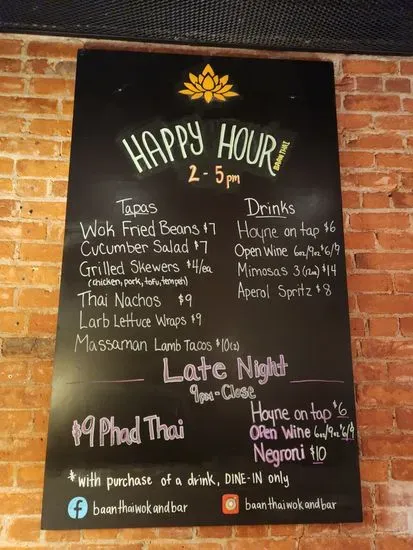 HAPPY HOUR!
BAAN THAI
2 - 5 pm
Tapas
Wok Fried Beans $7
Cucumber Salad $7
Grilled Skewers $4/ea
(chicken, pork, tofu, tempeh)
Thai Nachos $9
Larb Lettuce Wraps $9
Massaman Lamb Tacos $10(2)
Drinks
Hoyne on tap $6
Open Wine 6oz/9oz $6/9
Mimosas 3(12oz) $14
Aperol Spritz $8
Late Night
9pm - Close
$9 Phad Thai
Hoyne on tap $6
Open Wine 6oz/9oz $6/9
Negroni $10
*with purchase of a drink, DINE-IN only
f baanthaiwokandbar
baanthaiwokandbar